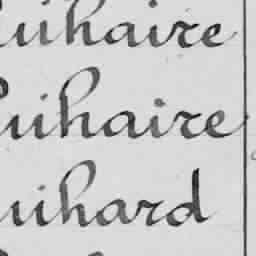 uihaire
uihaire
uihard